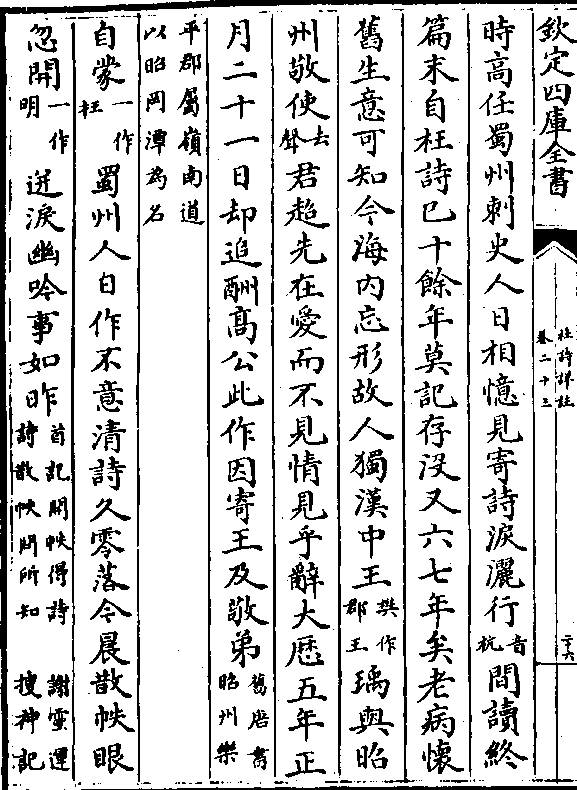 欽定四庫全書
杜詩詳註
卷二十三
二六
時高任蜀州刺史人日相憶見寄詩淚灑行音杭間讀終
篇末自枉詩已十餘年莫記存沒又六七年矣老病懷
舊生意可知今海内忘形故人獨漢中王樊作郡王瑀與昭
州敬使去聲君超先在愛而不見情見乎辭大厯五年正
月二十一日却追酬髙公此作因寄王及敬弟舊唐書昭州樂
平郡屬嶺南道以昭岡潭為名
自蒙一作枉蜀州人日作不意清詩久零落今晨散帙眼
忽開一作明迸淚幽吟事如昨首記開帙得詩詩散帙問所知謝靈運搜神記